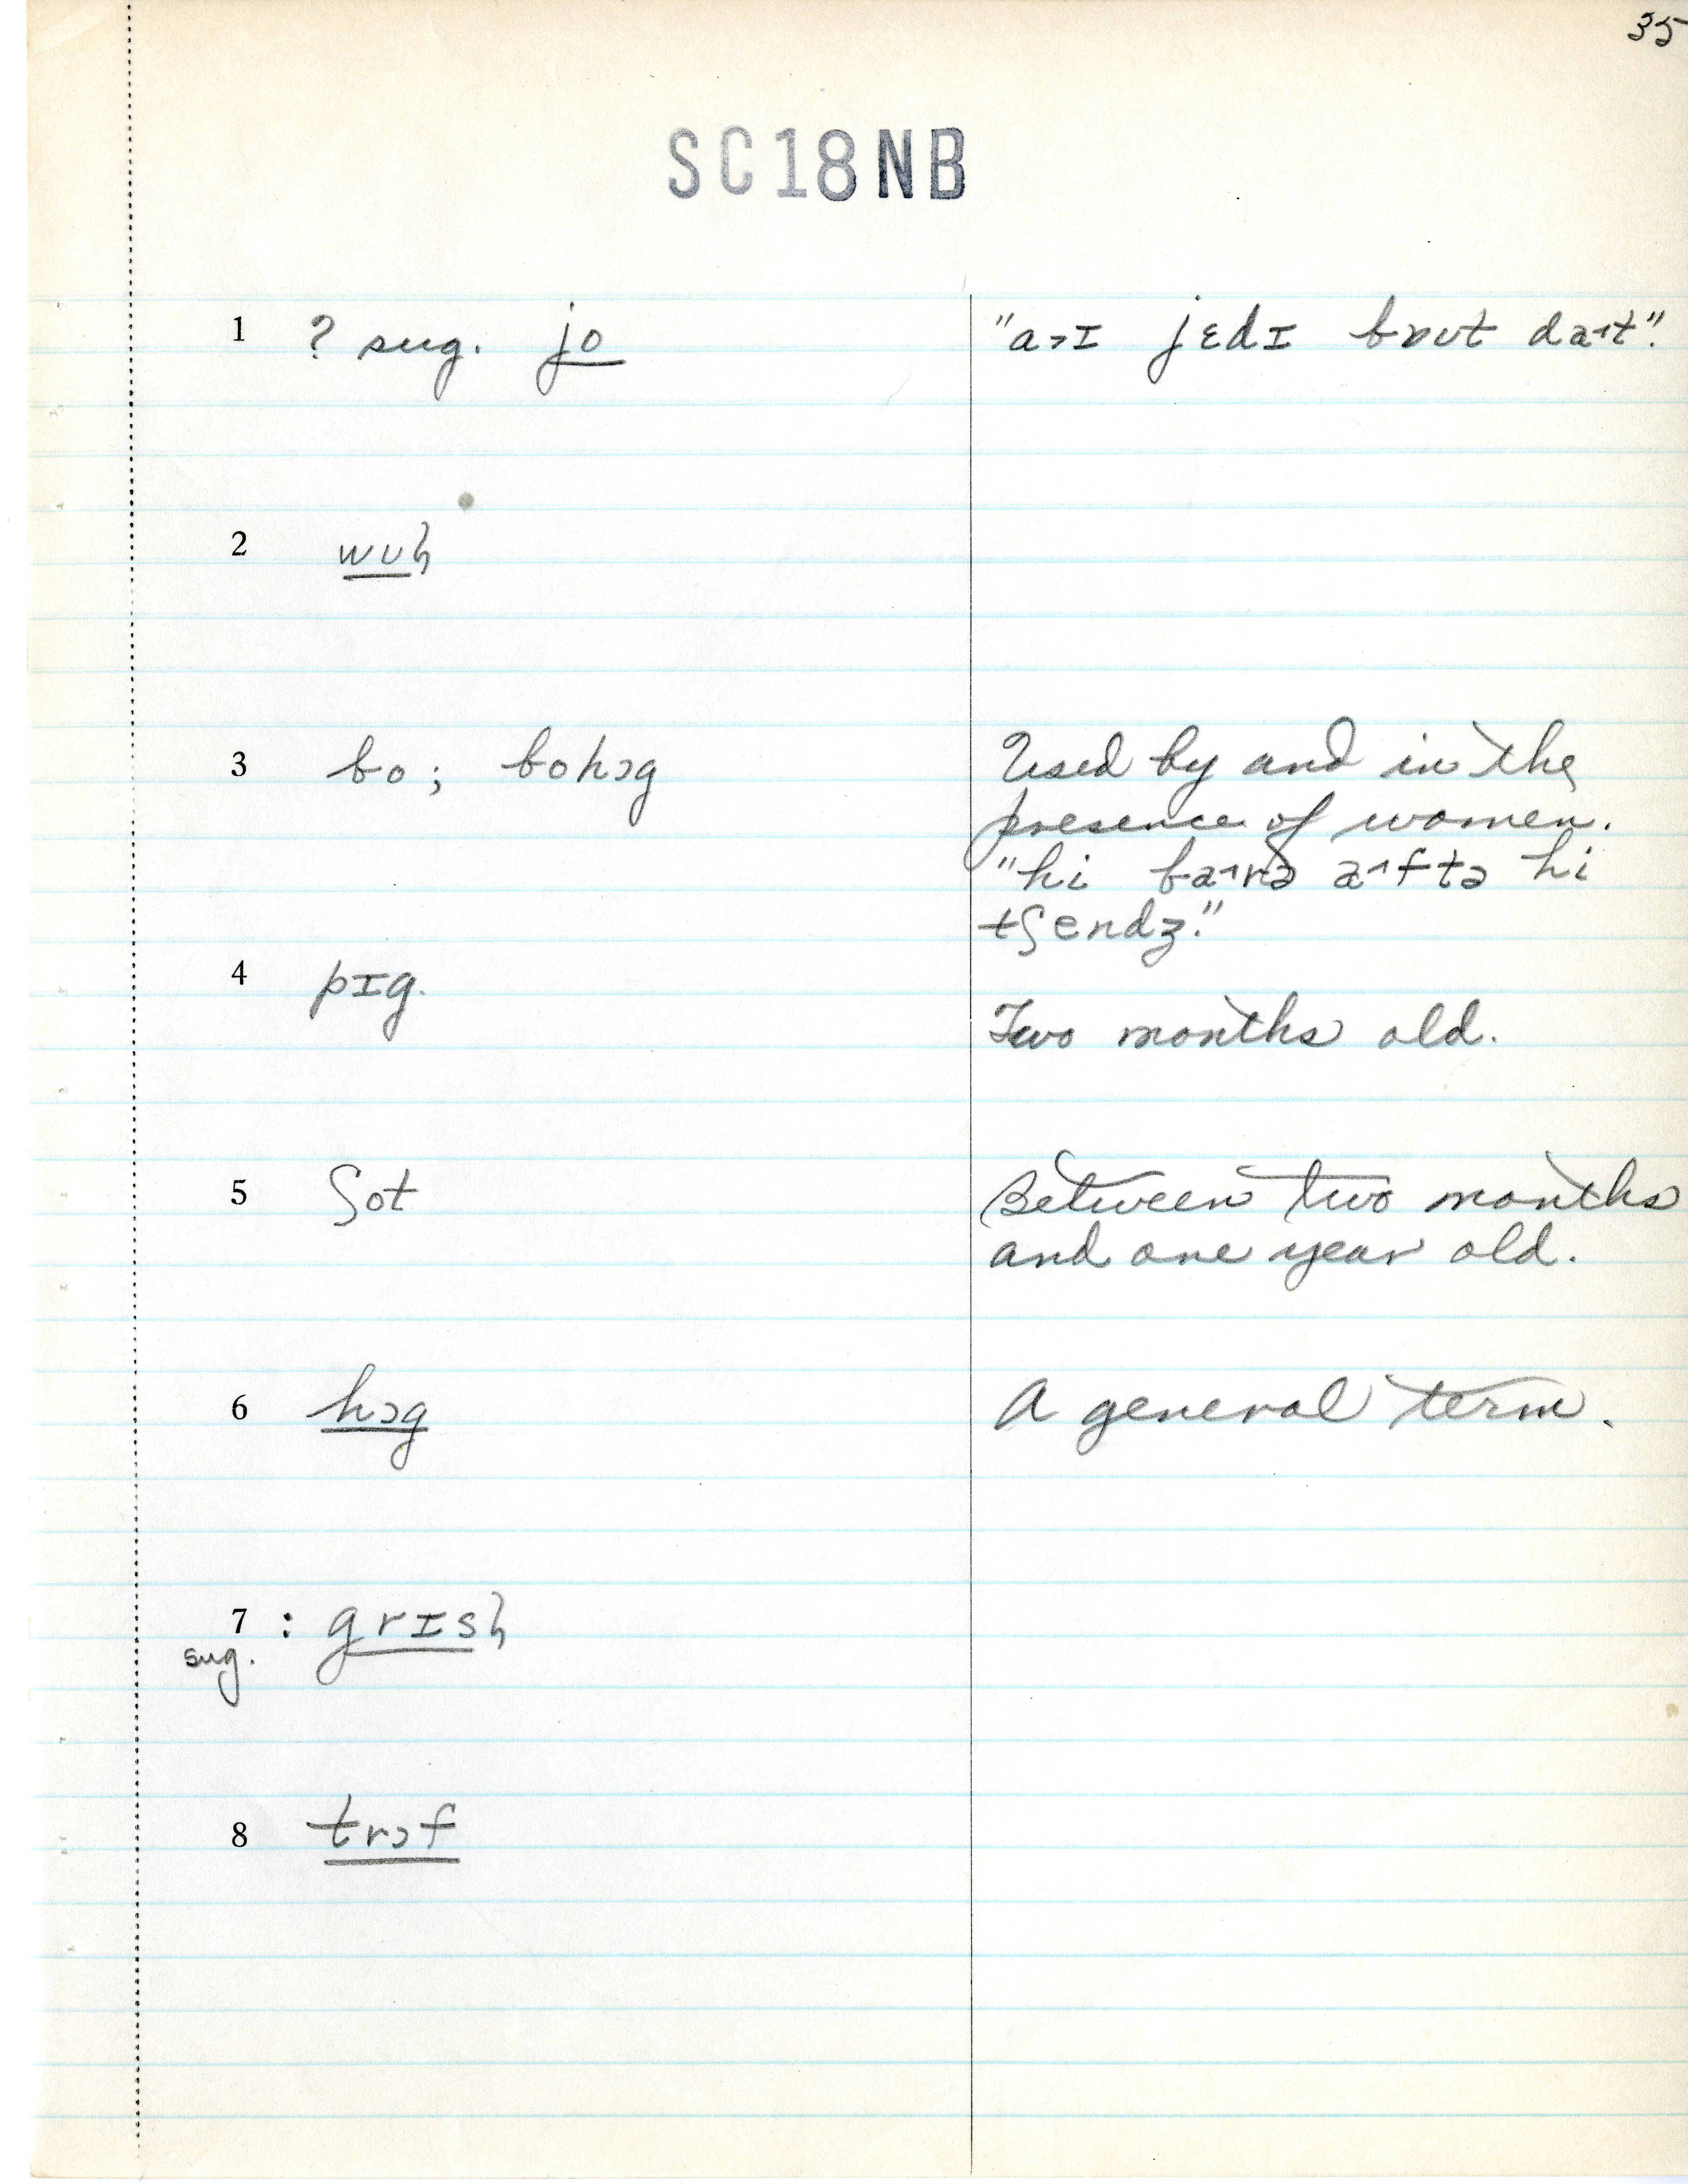 35
SC18NB
1 ? sug. jo "a˃ɪ jɛdɪ bʌʊt da˄t".
2 wʊɦ
3 bo; bohɔg Used by and in the
presence of women.
"hi ba˄rə a˄ftə hi
tʃendʒ."
4 pɪg.
Two months old.
5 ʃot Between two months
and one year old.
6 hɔg A general term.
7 : grɪsɦ
sug.
8 trɔf